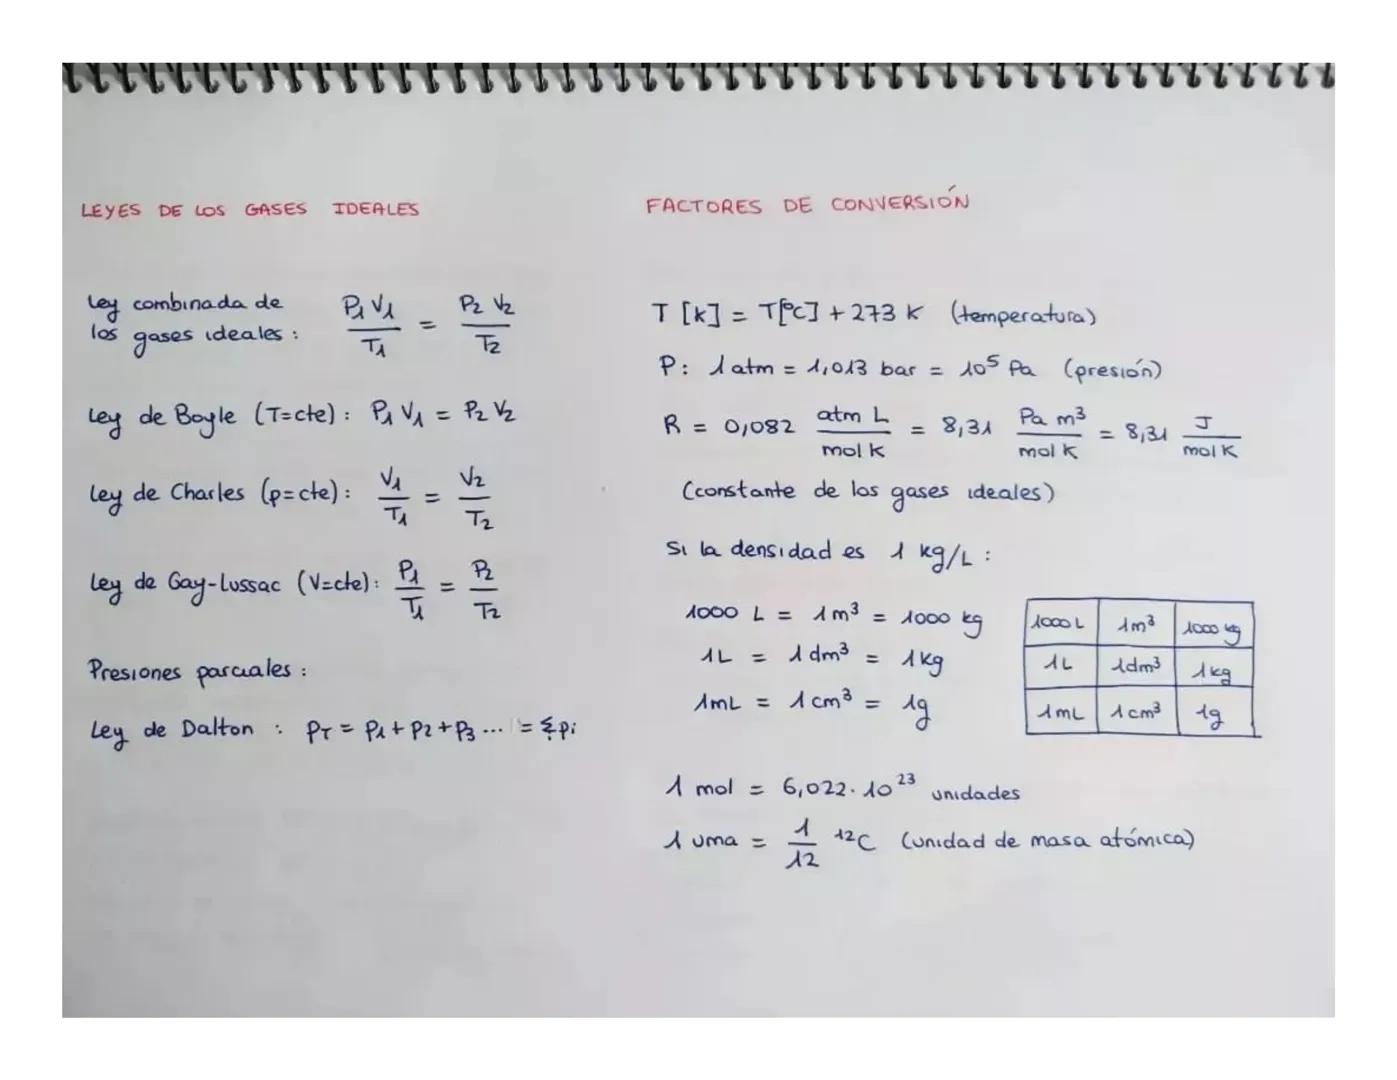 LEYES DE LOS GASES IDEALES
Ley combinada de
los gases ideales : P₁ V₁ / T₁ = P₂ V₂ / T₂
Ley de Boyle (T=cte) : P₁ V₁ = P₂ V₂
Ley de Charles (p=cte) : V₁ / T₁ = V₂ / T₂
Ley de Gay-Lussac (V=cte) : P₁ / T₁ = P₂ / T₂
Presiones parciales :
Ley de Dalton : PT = P₁ + P₂ + P₃ ... = Σ pi
FACTORES DE CONVERSIÓN
T [K] = T[ºC] + 273 K (temperatura)
P : 1 atm = 1,013 bar = 10⁵ Pa (presión)
R = 0,082 atm L / mol K = 8,31 Pa m³ / mol K = 8,31 J / mol K
(constante de los gases ideales)
Si la densidad es 1 kg/L :
1000 L = 1 m³ = 1000 kg
1L = 1 dm³ = 1kg
1mL = 1 cm³ = 1g
1000 L 1m³ 1000 kg
1L 1dm³ 1kg
1mL 1cm³ 1g
1 mol = 6,022·10²³ unidades
1 uma = 1/12 ¹²C (unidad de masa atómica)